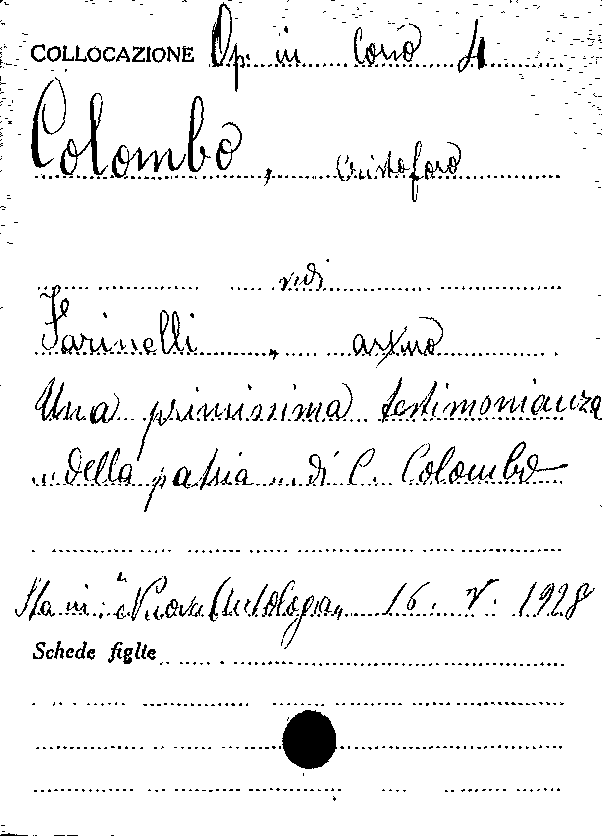 COLLOCAZIONE Op. in Corso 4
Colombo, Cristoforo
vedi
Farinelli, Arturo
Una primissima testimonianza
della patria di C. Colombo
Sta in: "Nuova Antologia" 16. V. 1928
Schede figlie